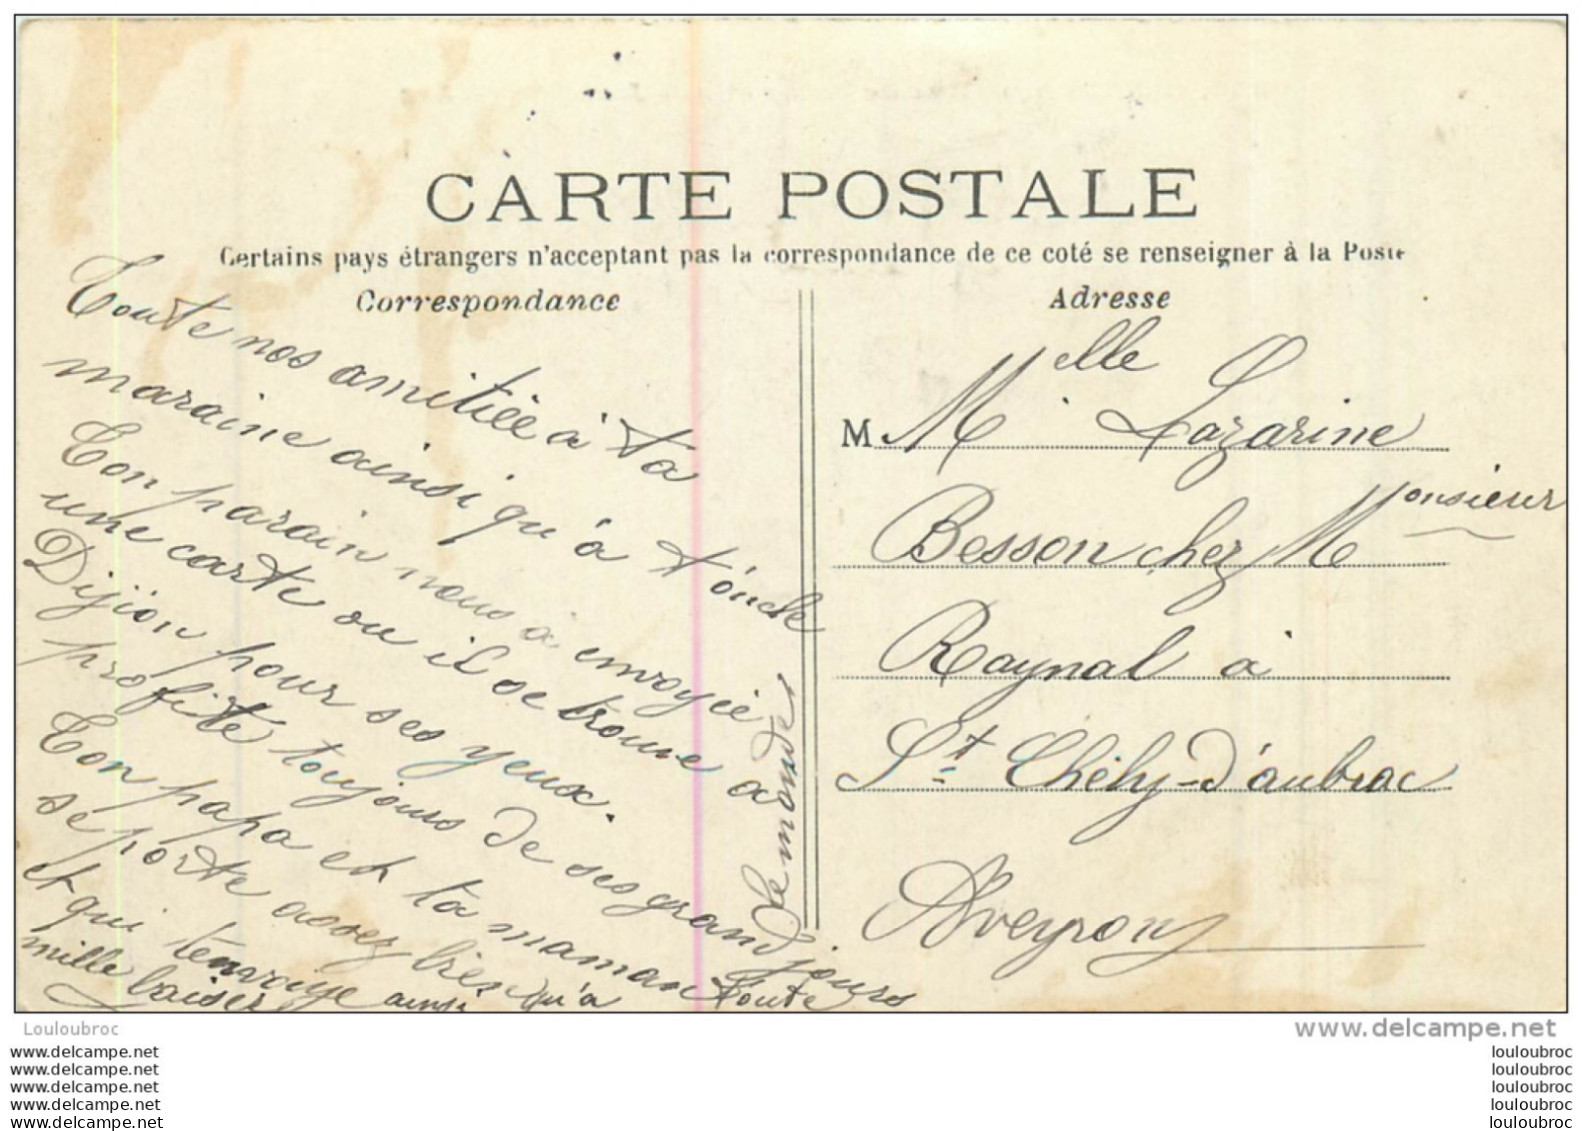 CARTE POSTALE
Certains pays étrangers n'acceptant pas la correspondance de ce coté se renseigner à la Poste
Correspondance
Adresse
Toute nos amitiée à ta
maraine ainsi qu'à t'óncle
Ton parain nous à envoyée
une carte ou il se trouve a
Dijïon pour ses yeux.
profite toujours de ses grand jours
Ton papa et ta maman
se porte assez bien
et qui t'envoye
mille baiser ainsi qu'a toute
le monde
M Melle Lazarine
Besson chez Monsieur
Raynal à
St Chély-d'aubrac
Aveyron
Louloubroc
www.delcampe.net
www.delcampe.net
www.delcampe.net
www.delcampe.net
www.delcampe.net
www.delcampe.net
louloubroc
louloubroc
louloubroc
louloubroc
louloubroc